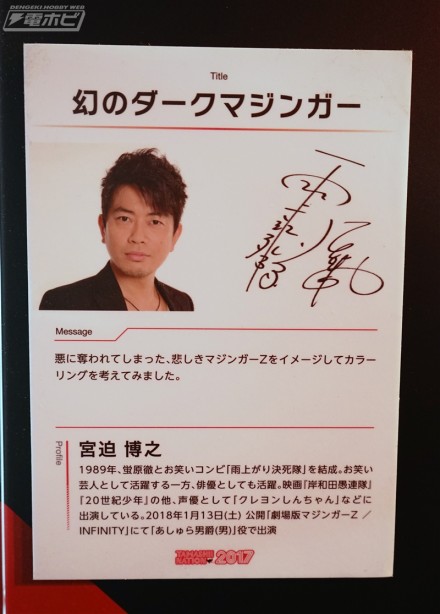 DENGEKI HOBBY WEB
電ホビ
Title
幻のダークマジンガー
Message
悪に奪われてしまった、悲しきマジンガーZをイメージしてカラー
リングを考えてみました。
Profile
宮迫 博之
1989年、蛍原徹とお笑いコンビ「雨上がり決死隊」を結成。お笑い
芸人として活躍する一方、俳優としても活躍。映画『岸和田愚連隊』
『20世紀少年』の他、声優として『クレヨンしんちゃん』などに
出演している。2018年1月13日(土) 公開「劇場版マジンガーZ /
INFINITY」にて「あしゅら男爵(男)」役で出演
TAMASHII NATION 2017